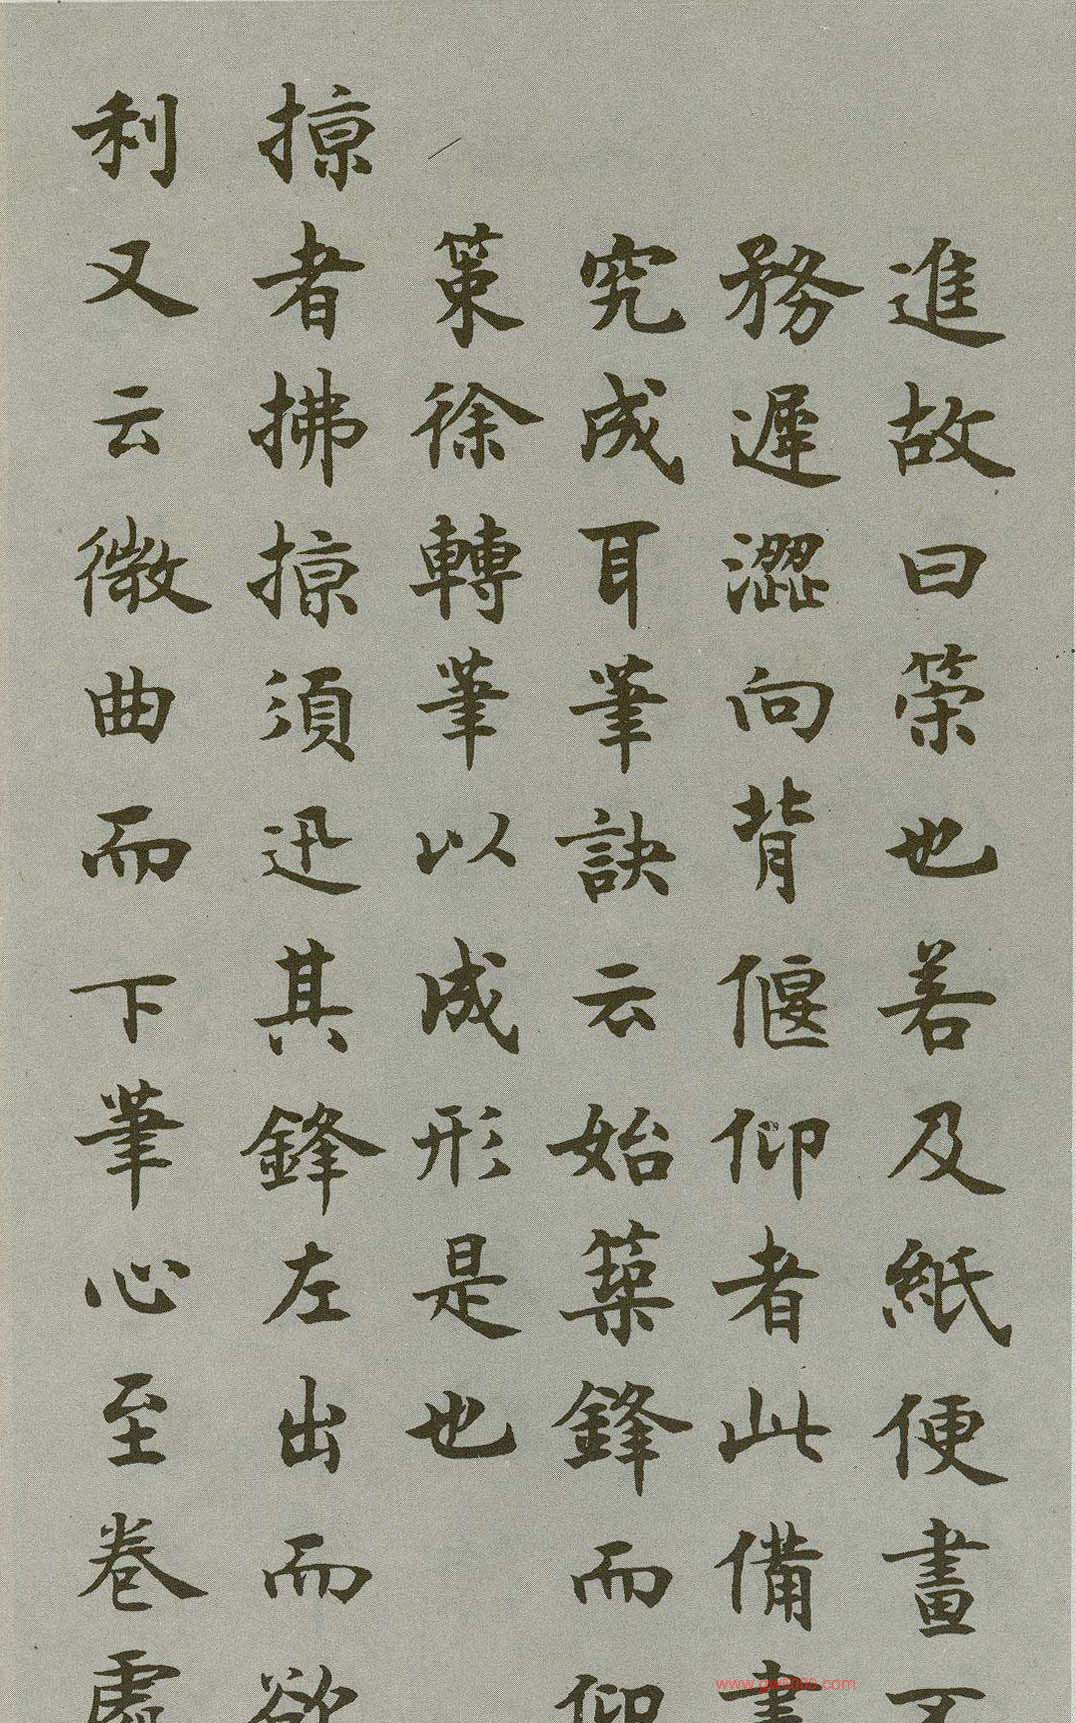 進故曰筞也若及紙便畫不
務遲澀向背偃仰者此備
究成耳筆訣云始築鋒而仰
丿策徐轉筆以成形是也
掠者拂掠須迅其鋒左出而欲
利又云微曲而下筆心至卷處